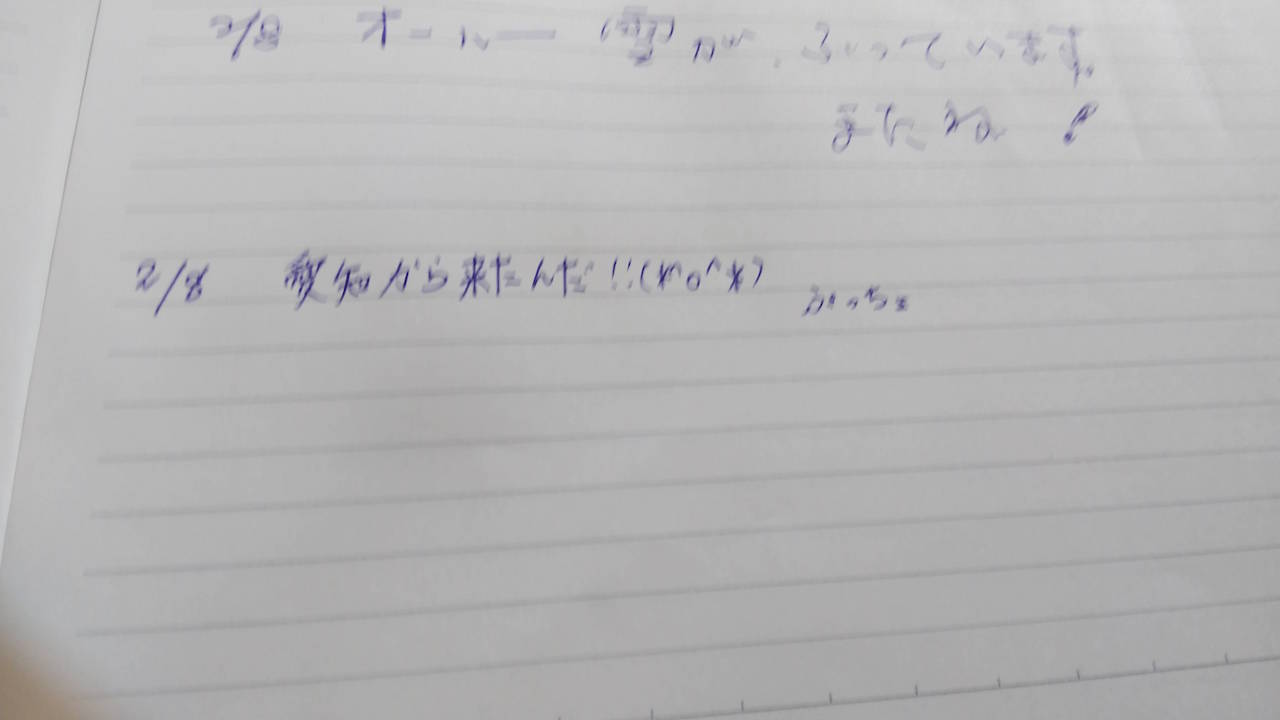 2/8 オールー(雨)が、ふっています。
またね!
2/8 愛知から来たんだ!!(*^o^*)